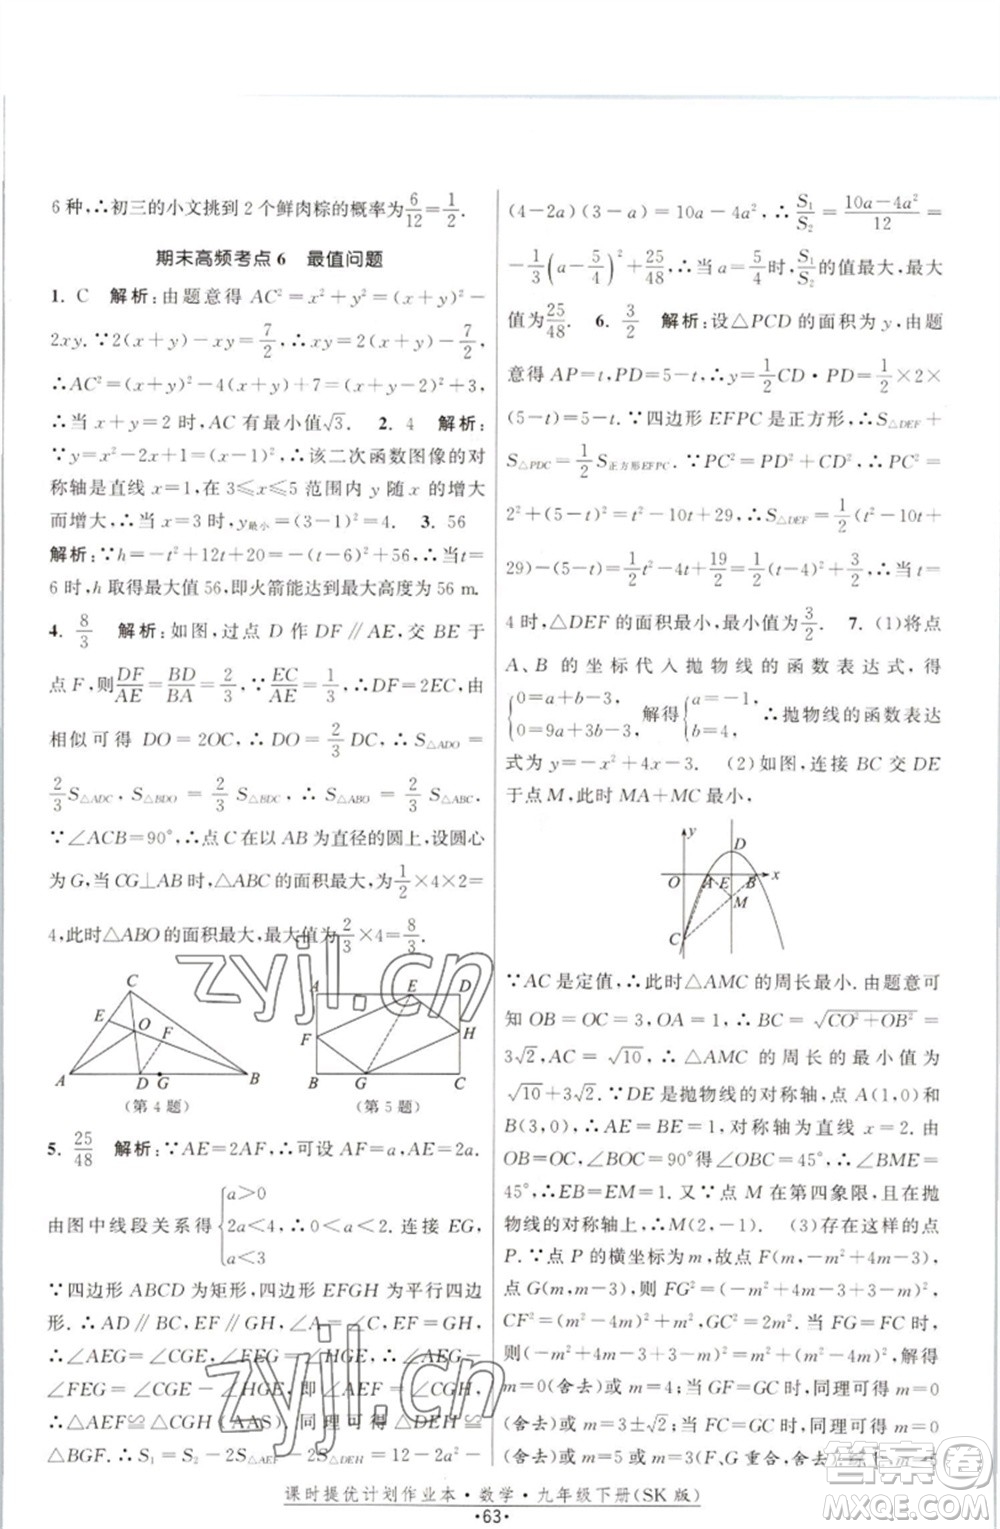 6 种,∴初三的小文挑到 2 个鲜肉粽的概率为6/12=1/2.
期末高频考点 6　最值问题
1. C　解析:由题意得 AC²=x²+y²=(x+y)²-
2xy. ∵2(x+y)-xy=7/2,∴xy=2(x+y)-7/2,
∴AC²=(x+y)²-4(x+y)+7=(x+y-2)²+3,
∴当 x+y=2 时,AC 有最小值√3.　2. 4　解析:
∵y=x²-2x+1=(x-1)²,∴该二次函数图像的对
称轴是直线 x=1,在 3≤x≤5 范围内 y 随 x 的增大
而增大,∴当 x=3 时,y最小=(3-1)²=4.　3. 56
解析:∵h=-t²+12t+20=-(t-6)²+56,∴当 t=
6 时,h 取得最大值 56,即火箭能达到最大高度为 56 m.
4. 8/3　解析:如图,过点 D 作 DF∥AE,交 BE 于
点 F,则DF/AE=BD/BA=2/3.∵EC/AE=1/3,∴DF=2EC,由
相似可得 DO=2OC,∴DO=2/3DC,∴S△ADO=
2/3S△ADC,S△BDO=2/3S△BDC,∴S△ABO=2/3S△ABC.
∵∠ACB=90°,∴点 C 在以 AB 为直径的圆上,设圆心
为 G,当 CG⊥AB 时,△ABC 的面积最大,为1/2×4×2=
4,此时△ABO 的面积最大,最大值为2/3×4=8/3.
C
E
O
F
A
D
G
B
(第 4 题)
A
E
D
F
H
B
G
C
(第 5 题)
5. 25/48　解析:∵AE=2AF,∴可设 AF=a,AE=2a.
由图中线段关系得{a>0
2a<4,
a<3
∴0<a<2.连接 EG,
∵四边形 ABCD 为矩形,四边形 EFGH 为平行四边
形.∴AD∥BC,EF∥GH,∠A=∠C,EF=GH,
∴∠AEG=∠CGE,∠FEG=∠HGE,∴∠AEG-
∠FEG=∠CGE-∠HGE,即∠AEF=∠CGH,
∴△AEF≌△CGH(AAS).同理可得△DEH≌
△BGF.∴S₁=S₂-2S△AEF-2S△DEH=12-2a²-
(4-2a)(3-a)=10a-4a²,∴S₁/S₂=(10a-4a²)/12=
-1/3(a-5/4)²+25/48,∴当 a=5/4时,S₁/S₂的值最大,最大
值为25/48.　6. 3/2　解析:设△PCD 的面积为 y,由题
意得 AP=t,PD=5-t,∴y=1/2CD·PD=1/2×2×
(5-t)=5-t.∵四边形 EFPC 是正方形,∴S△DEF+
S△PDC=1/2S正方形EFPC.∵PC²=PD²+CD²,∴PC²=
2²+(5-t)²=t²-10t+29,∴S△DEF=1/2(t²-10t+
29)-(5-t)=1/2t²-4t+19/2=1/2(t-4)²+3/2,∴当 t=
4 时,△DEF 的面积最小,最小值为3/2.　7. (1)将点
A、B 的坐标代入抛物线的函数表达式,得
{0=a+b-3,
0=9a+3b-3,
解得{a=-1,
b=4,
∴抛物线的函数表达
式为 y=-x²+4x-3.　(2)如图,连接 BC 交 DE
于点 M,此时 MA+MC 最小,
y
D
O
A
E
B
x
M
C
∵AC 是定值,∴此时△AMC 的周长最小.由题意可
知 OB=OC=3,OA=1,∴BC=√(CO²+OB²)=
3√2,AC=√10,∴△AMC 的周长的最小值为
√10+3√2.∵DE 是抛物线的对称轴,点 A(1,0)和
B(3,0),∴AE=BE=1,对称轴为直线 x=2.由
OB=OC,∠BOC=90°得∠OBC=45°,∴∠BME=
45°,∴EB=EM=1.又∵点 M 在第四象限,且在抛
物线的对称轴上,∴M(2,-1).　(3)存在这样的点
P.∵点 P 的横坐标为 m,故点 F(m,-m²+4m-3),
点 G(m,m-3),则 FG²=(-m²+4m-3+3-m)²,
CF²=(-m²+4m)²+m²,GC²=2m².当 FG=FC 时,
则(-m²+3m)²=m²+(-m²+4m)²,解得 m=
0(舍去)或 m=4;当 GF=GC 时,同理可得 m=0
(舍去)或 m=3±√2;当 FC=GC 时,同理可得 m=0
(舍去)或 m=5 或 m=3(F、G 重合,舍去
课时提优计划作业本·数学·九年级下册(SK 版)
·63·
zyjl.cn
zyjl.cn
答案卷
MXQE.COM